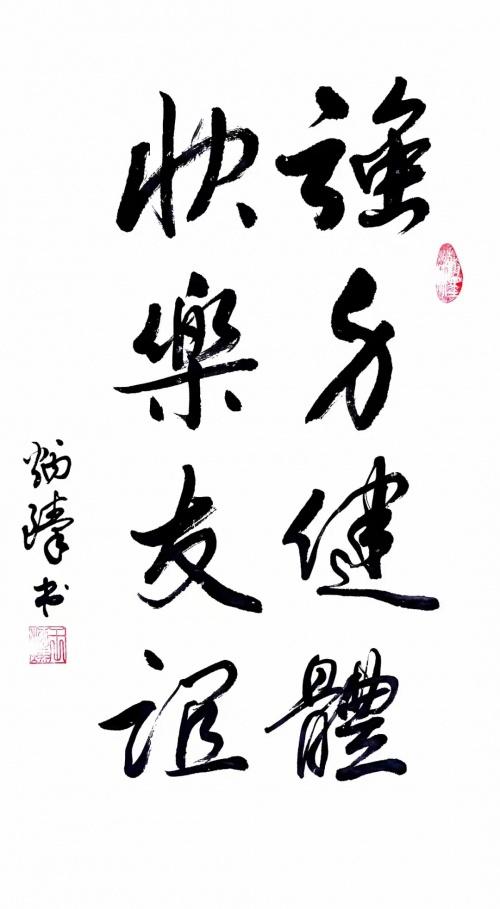 強身健體
快樂友誼
炳臻书